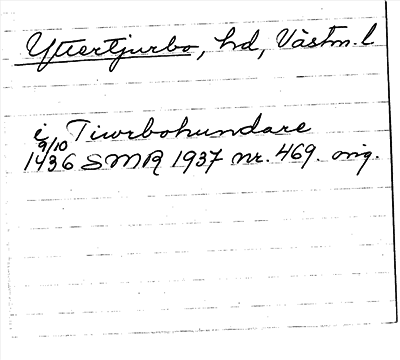 Yttertjurbo, hd, Västm. l.
i Tiwrbohundare
9/10
1436 SMR 1937 nr. 469. orig.